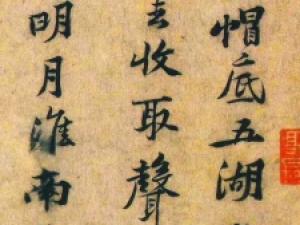 帽底五湖
收取聲
明月淮南